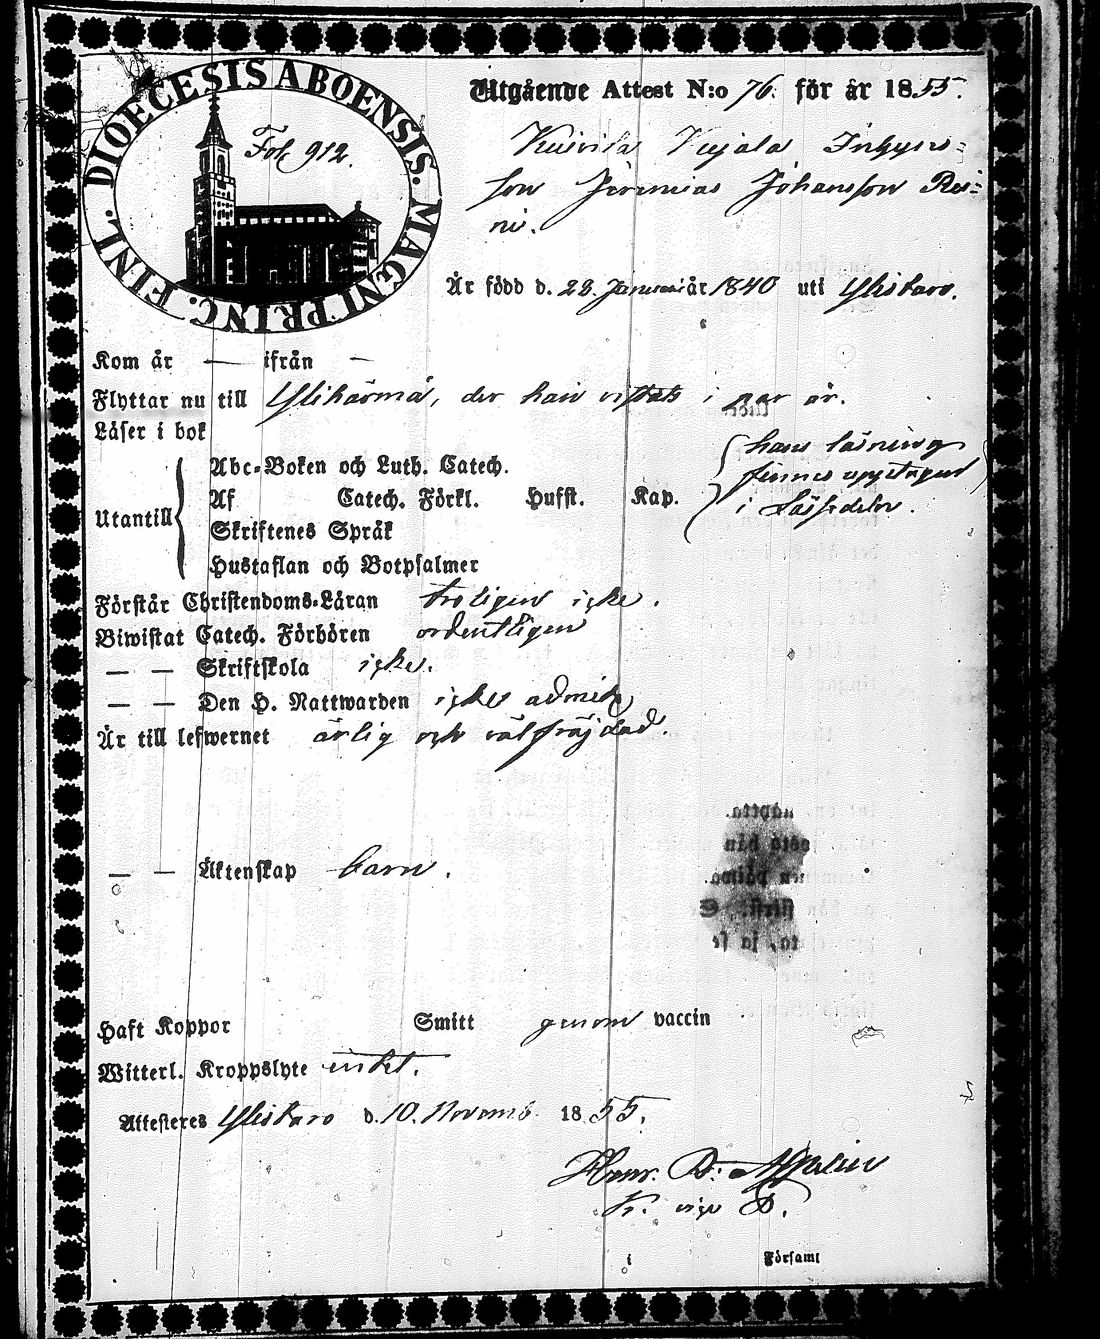 DIOECESIS ABOENSIS. MAGNI PRINC. FINL.
Fol. 912.
Utgående Attest N:o 76. för år 1855.
Jnhyses=
son Jeremias Johansson Rei=
ni.
Är född d. 28. Januari år 1840 uti Ylistaro.
Kom år — ifrån —
Flyttar nu till Ylihärmä, der han vistats i par år.
Läser i bok
Utantill
Abc-Boken och Luth. Catech.
Af Catech. Förkl. Husst. Kap.
Skriftenes Språk
Hustaflan och Botpsalmer
hans läsning
finnes upptagen
i Läsedeln.
Förstår Christendoms-Läran troligen icke.
Biwistat Catech. Förhören ordentligen
— — Skriftskola icke.
— — Den H. Nattwarden icke admit.
Är till lefwernet ärlig och välfräjdad.
— — Äktenskap barn.
Haft Koppor Smitt genom vaccin
Witterl. Kroppslyte intet.
Attesteres Ylistaro d. 10. Novemb. 1855.
i Församl